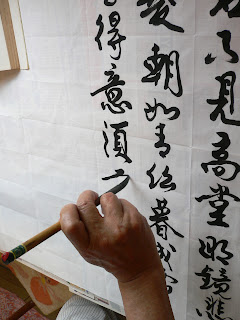 不見高堂明鏡悲
髮朝如青絲暮成
得意須